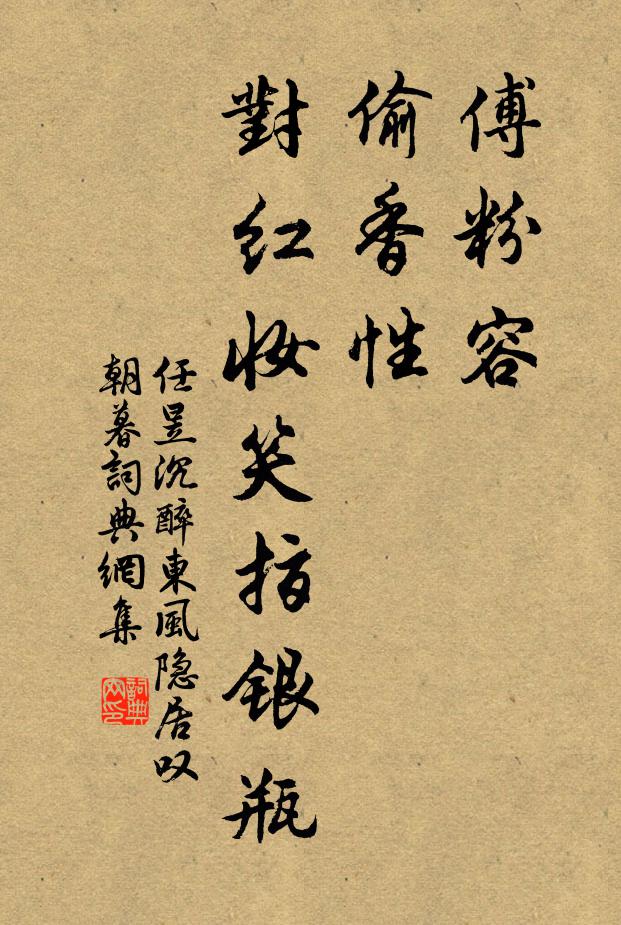 傅粉容
偷香性
對红妆笑指銀瓶
任昱沉醉東風隐居叹
朝暮詞典網集
詞典
网印